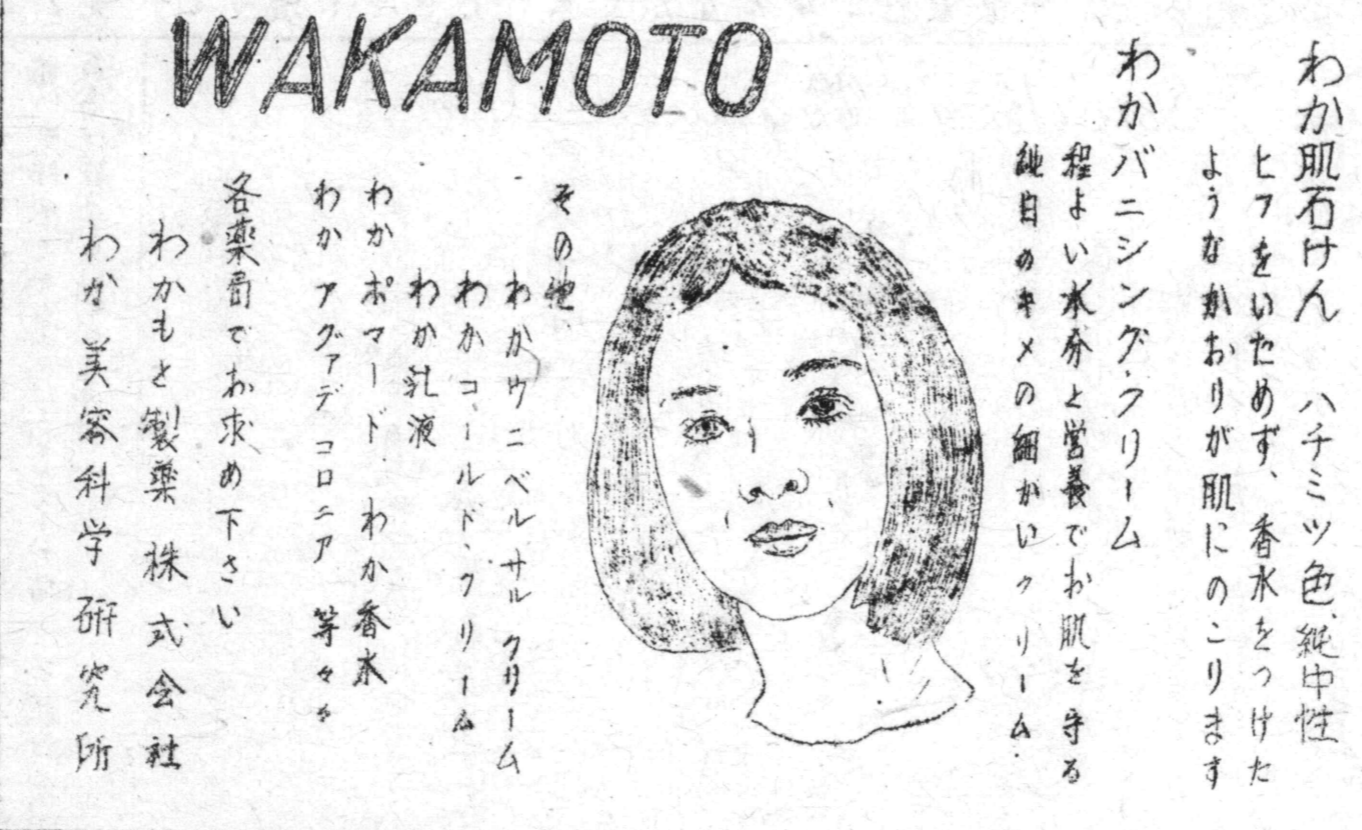 WAKAMOTO
わか肌石けん ハチミツ色、純中性
ヒフをいためず、香水をつけた
ようなかおりが肌にのこります
わかバニシング・クリーム
程よい水分と営養でお肌を守る
純白のキメの細かいクリーム.
その他
わかウニベルサル クリーム
わかコールド・クリーム
わか乳液
わかポマード わか香水
わかアグァデコロニア 等々々
各薬局でお求め下さい
わかもと製薬 株式会社
わか美容科学研究所